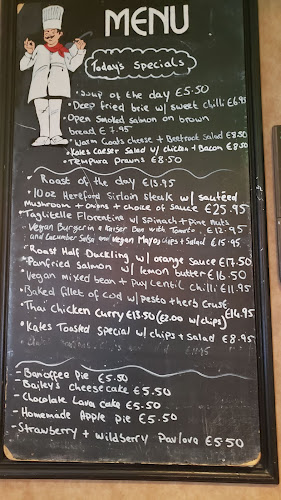 MENU
Today's Specials
• Soup of the day €5.50
• Deep fried brie w/ sweet chilli €6.95
• Open Smoked Salmon on brown
bread €7.95
• Warm Goats cheese + Beetroot Salad €8.50
• Kates Caeser Salad w/ chicken + Bacon €8.50
• Tempura prawns €8.50
• Roast of the day €13.95
• 10oz Hereford Sirloin Steak w/ sautéed
Mushrooms + onions + choice of sauce €25.95
• Taglitelle Florentine w/ spinach + pine nuts
Vegan Burger in a Kaiser Bun with Tomato . €12.95
and Cucumber Salsa and Vegan Mayo chips + Salad €15.95
• Roast Half Duckling w/ orange sauce €17.50
• Panfried Salmon w/ lemon butter €16.50
• Vegan mixed bean + Puy Lentil Chilli €11.95
• Baked fillet of Cod w/ pesto + herb crust
€14.95
• Thai chicken curry €13.50 (€2.00 w/ chips)
• Kates Toasted Special w/ chips + Salad €8.95
- Banoffee Pie €5.50
- Bailey's Cheesecake €5.50
- Chocolate Lava Cake €5.50
- Homemade Apple pie €5.50
- Strawberry + wildberry Pavlova €5.50